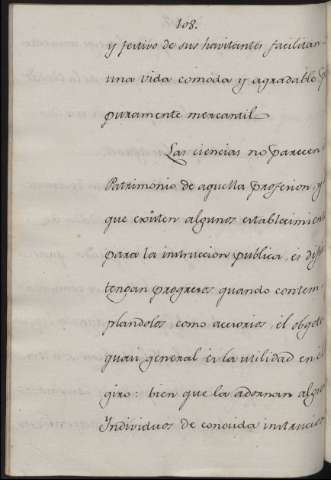 108.
y festivo de sus havitantes facilitan
una vida comoda y agradable
puramente mercantil.
Las ciencias no parecen
Patrimonio de aquella profesion, y
que existen algunos establecimien
para la instruccion publica, es dif
tengan progresos, quando contem
plandolos como acesorios, el obgeto
quasi general es la utilidad en el
giro: bien que la adornan algu
Individuos de conocida instruccion